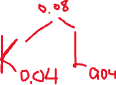 0.08
0.04
0.04